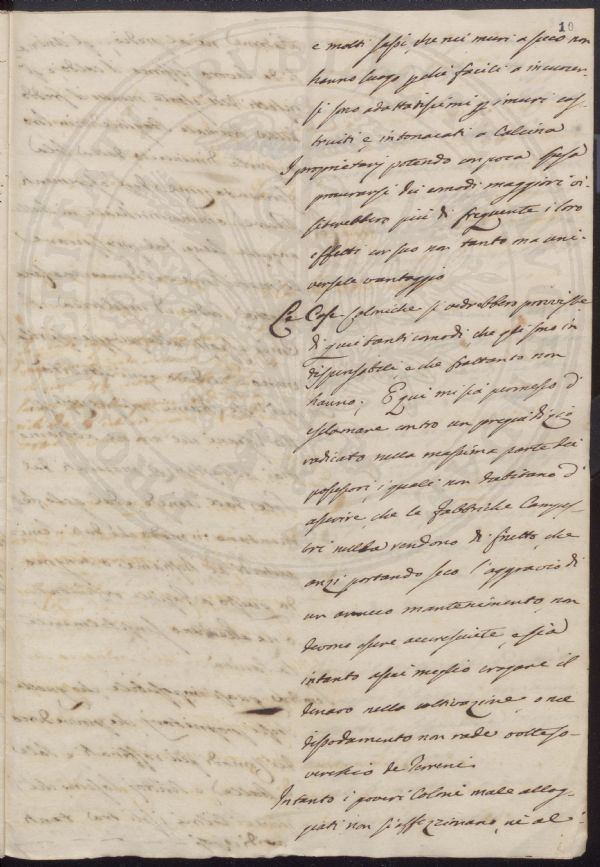 10
e molti sassi, che nei muri a secco non
hanno luogo perchè facili a muover-
si sono adattatissimi p i muri cos-
truiti e intonacati a Calcina
I proprietarj potendo con poca spesa
procurarsi dei comodi maggiori vi-
siterebbero più di frequente i loro
effetti con suo non tanto ma uni-
versale vantaggio
Le Case Coloniche si vedrebbero provviste
di quei tanti comodi che gli sono in
dispensabili, e che frattanto non
hanno. E qui mi sia permesso d'
esclamare contro un pregiudizio
radicato nella massima parte dei
possessori, i quali non dubitano d'
asserire che le Fabbriche Campes-
tri nulla rendono di frutto, che
anzi portando seco l'aggravio di
un annuo mantenimento non
devono essere accresciute, e sia
intanto assai meglio erogare il
denaro nella coltivazione o nel
dissodamento non rade volte so-
verchio de Terreni.
Intanto i poveri Coloni male allog-
giati non si affezzionano, nè al